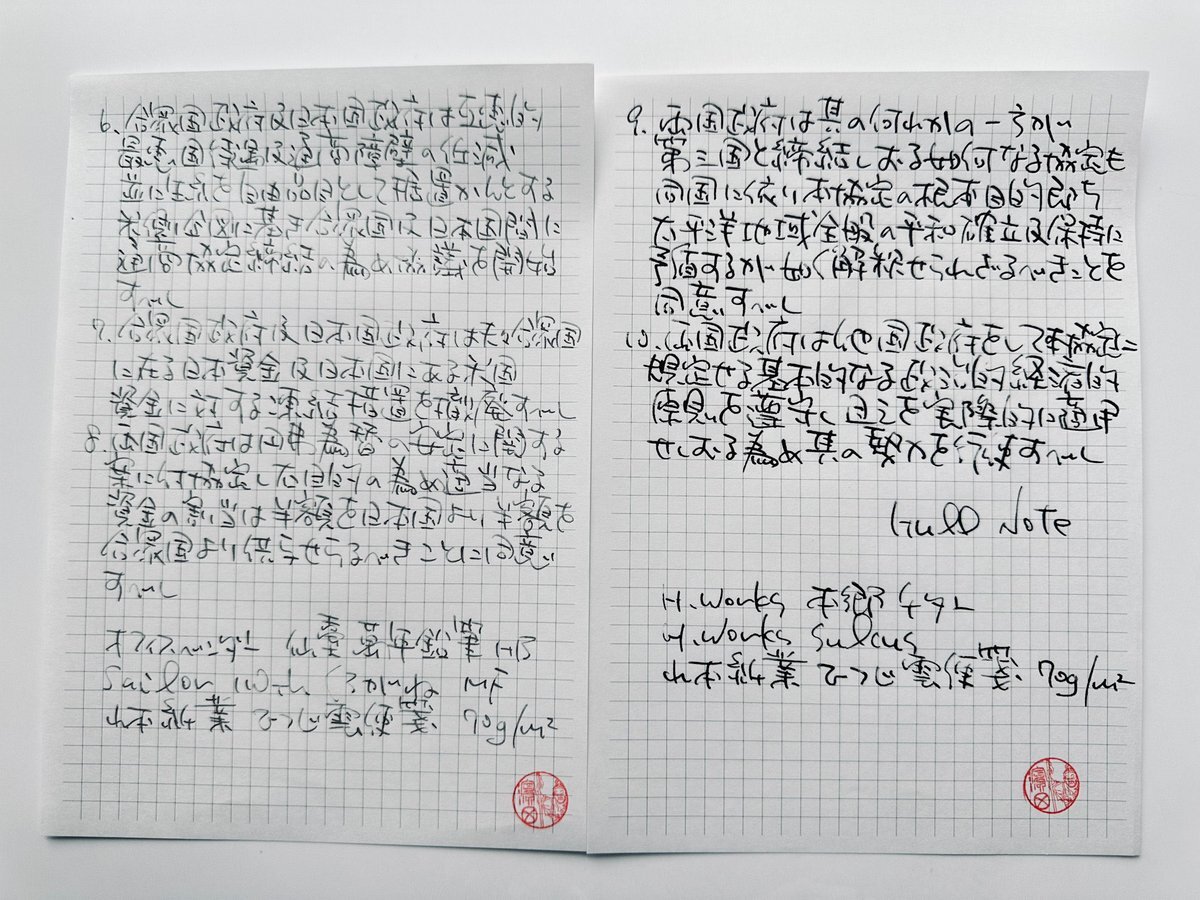 6. 合衆国政府及日本国政府は互恵的
最恵国待遇及通商障壁の低減
並に生糸を自由品目として据置かんとする
米側企図に基き合衆国及日本国間に
通商協定締結の為め協議を開始
すべし
7. 合衆国政府及日本国政府は夫々合衆国
に在る日本資金及日本国にある米国
資金に対する凍結措置を撤廃すべし
8. 両国政府は円弗為替の安定に関する
案に付協定し右目的の為め適当なる
資金の割当は半額を日本国より半額を
合衆国より供与せらるべきことに同意
すべし
オフィスベンダー 仙雲萬年鉛筆 HB
Sailor with くろがね MF
山本紙業 ひつじ雲便箋 70g/m²
9. 両国政府は其の何れかの一方が
第三国と締結しおる如何なる協定も
同国に依り本協定の根本目的即ち
太平洋地域全般の平和確立及保持に
矛盾するが如く解釈せられざるべきことを
同意すべし
10. 両国政府は他国政府をして本協定に
規定せる基本的なる政治的経済的
原則を遵守し且之を実際的に適用
せしむる為め其の勢力を行使すべし
Hull Note
H.Works 本郷
H.Works Sulcus
山本紙業 ひつじ雲便箋 70g/m²